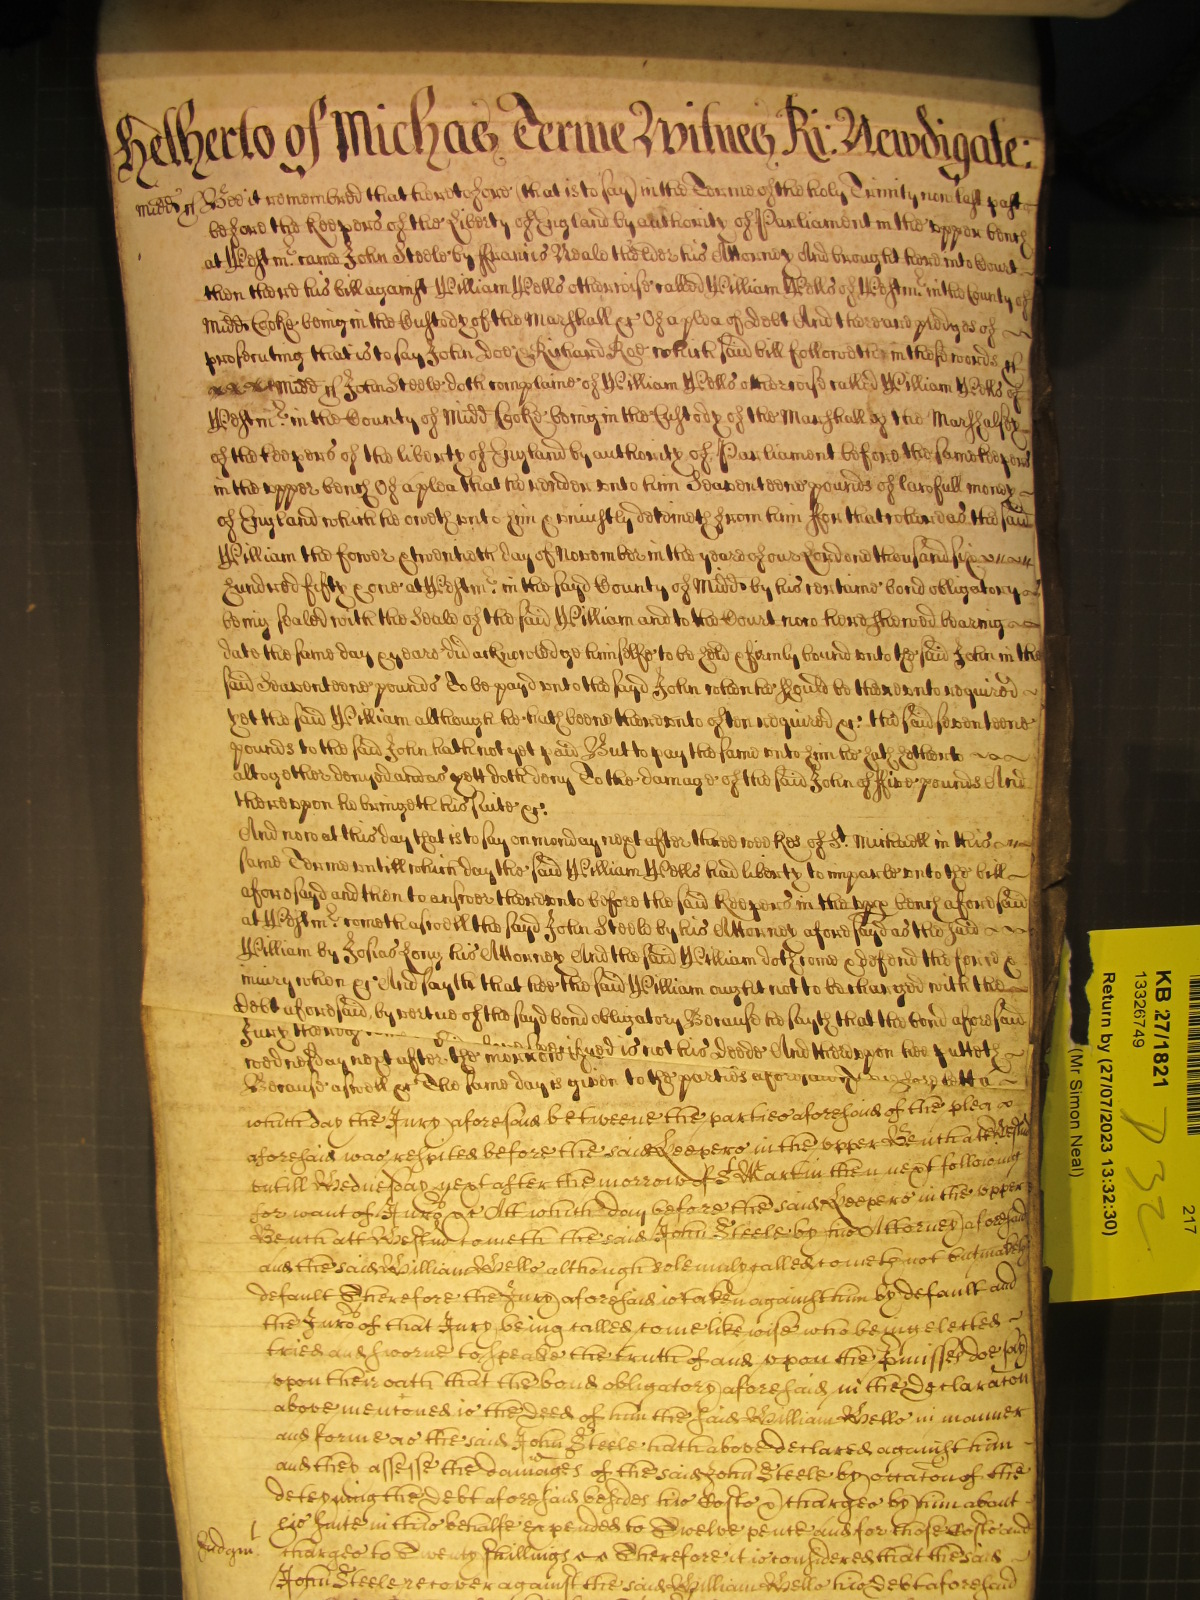 Hetherto of Michas Terme Witnes Ri: Newdigate:
Midds ss Bee it remembred that heretofore (that is to say) in the Terme of the holy Trinity now last past
before the Keepers of the Liberty of England by authority of Parliament in the upper bench
at Westmr. came John Steele by Francis Neale thelder his Attorney And brought here into Court
then there his bill against William Wells otherwise called William Wells of Westmr. in the County of
Midds Cooke being in the Custody of the Marshall &c Of a plea of debt And there are pledges of
prosecuting that is to say John Doe & Richard Roe which said bill followeth in these words ss
Midds ss John Steele doth complaine of William Wells otherwise called William Wells of
Westmr. in the County of Midd Cooke being in the Custody of the Marshall of the Marshalsey
of the keepers of the liberty of England by authority of Parliament before the same keepers
in the upper bench Of a plea that he render unto him Seaventeene pounds of lawfull money
of England which he oweth unto him & uniustly deteineth from him For that whereas the said
William the fower & twentieth day of November in the yeare of our Lord one thousand six
hundred fifty & one at Westmr. in the sayd County of Midds by his certaine bond obligatory
being sealed with the Seale of the said William and to the Court now here shewed bearing
date the same day & yeare did acknowledge himselfe to be held & firmly bound unto the said John in the
said Seaventeene pounds To be payd unto the sayd John when he should be thereunto required
yet the said William although he hath beene thereunto often required &c. the said seventeene
pounds to the said John hath not yet paid But to pay the same unto him he hath hetherto
altogether denyed and as yett doth deny To the damage of the said John of five pounds And
thereupon he bringeth his suite &c.
And now at this day that is to say on monday next after three weekes of St. Michaell in this
same Terme untill which day the said William Wells had liberty to imparle unto the bill
aforesayd and then to answer thereunto before the said Keepers in the upp bench aforesaid
at Westmr. cometh aswell the sayd John Steele by his Attorney aforesayd as the said
William by Josias Long his Attorney And the said William doth come & defend the force &
iniury when &c And sayth that hee the said William ought not to be charged with the
debt aforesaid by vertue of the sayd bond obligatory Because he sayth that the bond aforesaid
Jury thereof
wednesday next after the morrow is not his deede And thereupon hee putteth
Because aswell &c The same day is given to the parties aforesaid
which day the Jury aforesaid betweene the parties aforesaid of the plea
aforesaid was respited before the said Keepers in the upper Bench att Westmr
untill Wednesday next after the morrow of St Martin then next following
for want of Juro &c Att which day before the said Keepers in the upper
Bench att Westmr cometh the said John Steele by his Attorney aforesaid
and the said William Wells although solemnly called cometh not but maketh
default Therefore the Jury aforesaid is taken against him by default and
the Juro of that Jury being called come likewise who being elected
tried and sworne to speake the truth of and upon the pmisses doe say
upon their oath that the bond obligatory aforesaid in the declaraton
above mentoned is the deed of him the said William Wells in manner
and forme as the said John Steele hath above declared against him
and they assesse the damages of the said John Steele by occaton of the
deteyning the debt aforesaid besides his Costs & charges by him about
his suite in this behalfe expended to Twelve pence and for those Costs and
Judgmt charges to Twenty shillings Therefore it is considered that the said
John Steele recover against the said William Wells his debt aforesaid
KB 27/1821
13326749
Return by (27/07/2023 13:32:30)
(Mr Simon Neal)
217